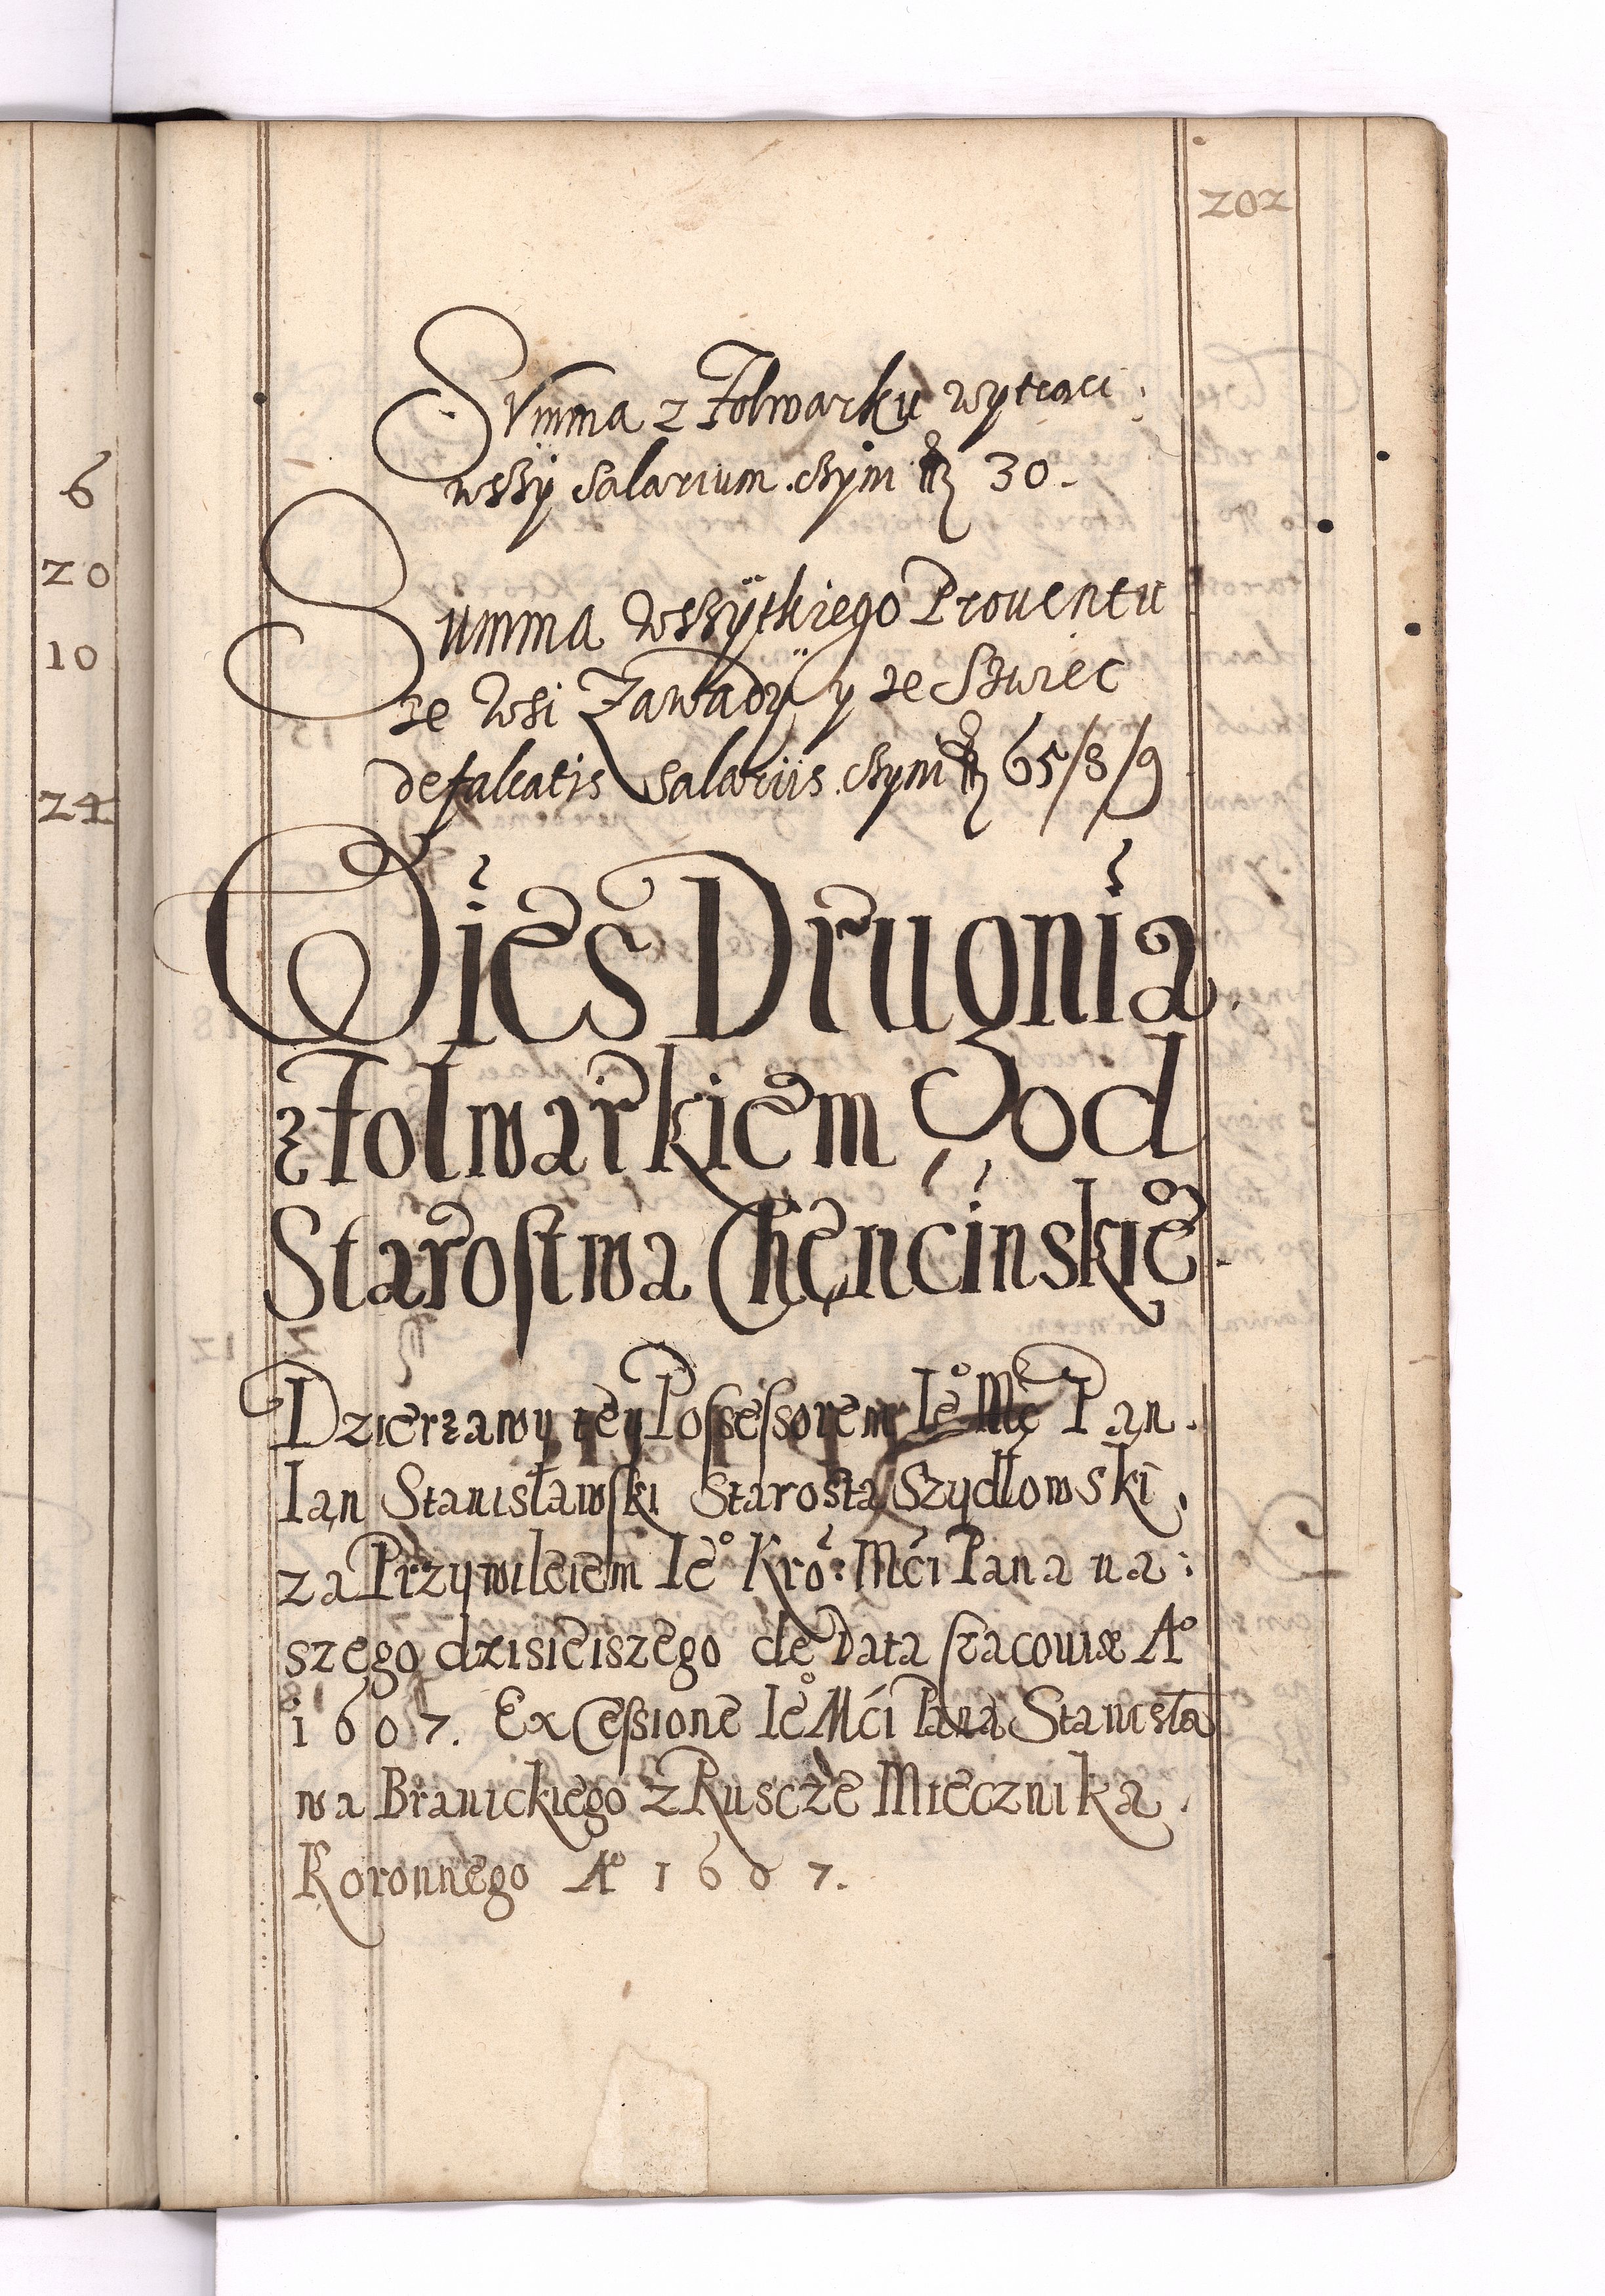 202
6
20
10
24
Summa z Folwarku wytrąci:
wszÿ Salarium. czyni fl 30.
Summa wszÿtkiego Prouentu
ze wsi Zawadÿ y ze
defalcatis Salariis. czyni fl 65/8/9
Wies Drugnia.
z folwarkiem od
Starostwa Chęncinskieº.
Dzierzawy tey Possessorem Ieº Mć Pan.
Ian Stanisławski Starosta Szydłowski.
za Przywileiem Ieº Kró: Mći Pana na:
szego dzisieiszego de Data Cracouiæ Aº
1607. Ex Cessione Ieº Mći Pana Stanisła
wa Branickiego z Ruscze Miecznika.
Koronnego Aº 1607.